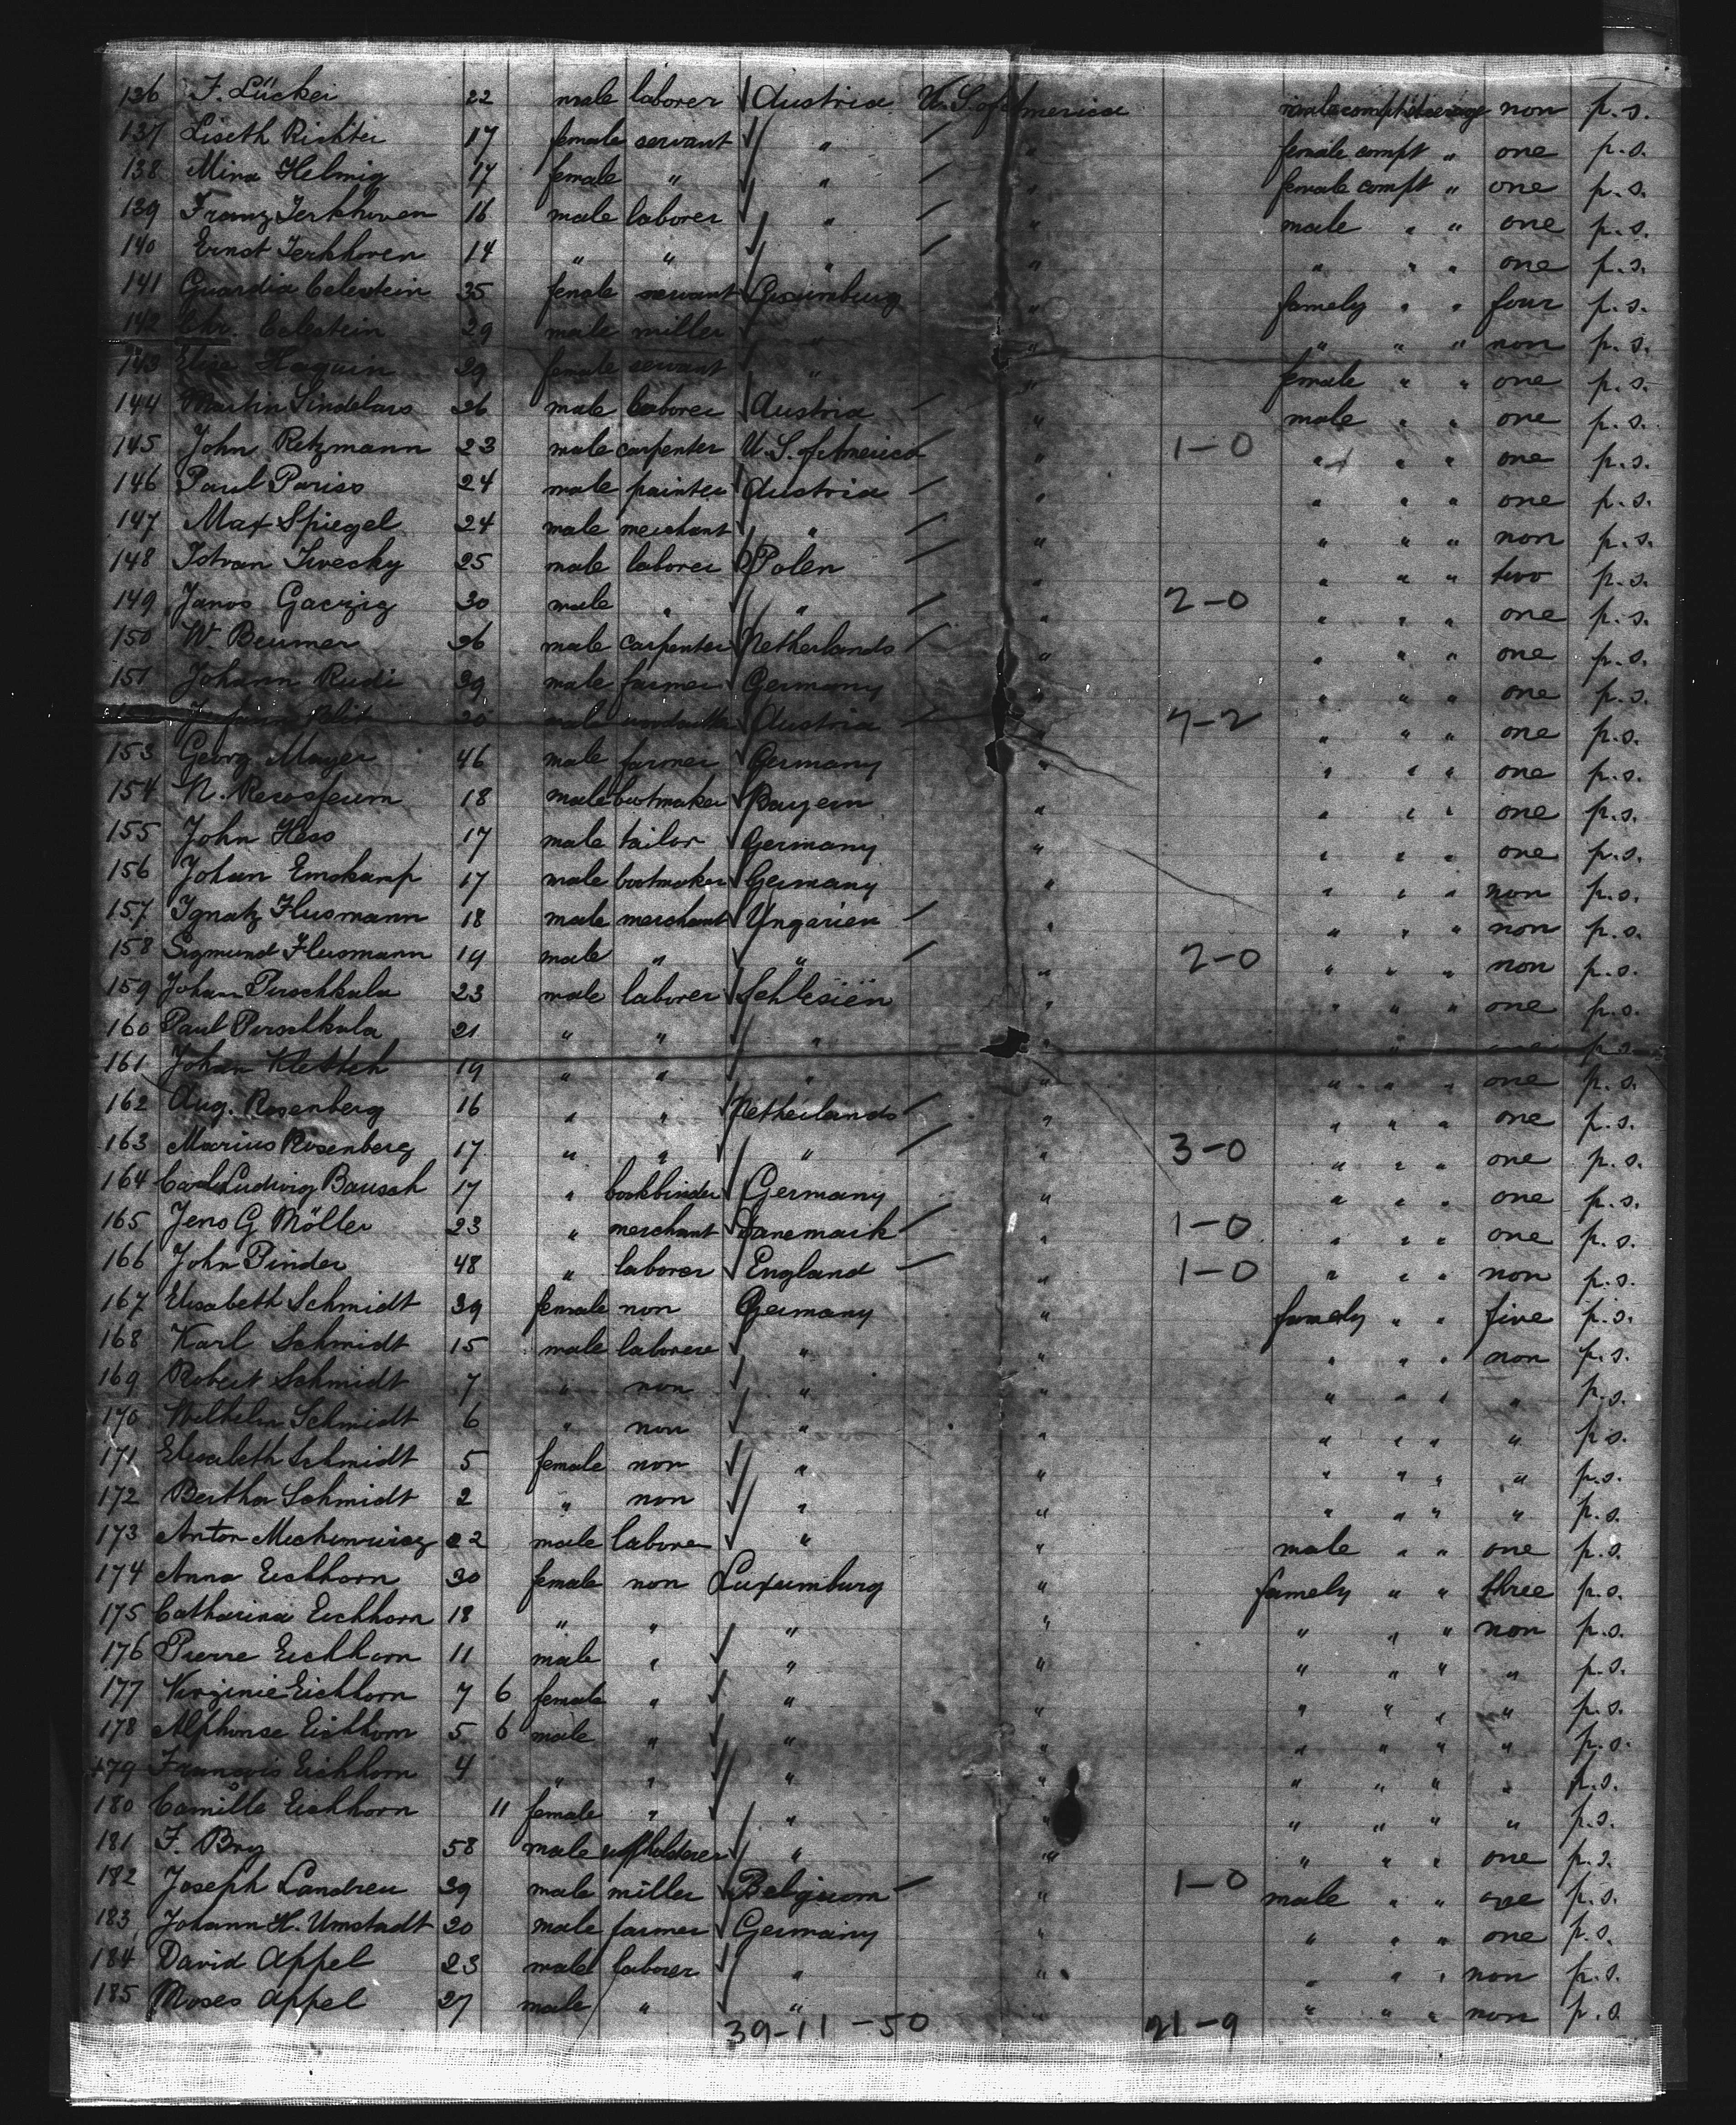 136 F. Lücker 22 male laborer Austria U.S. of America male compt steerage non p.s.
137 Liseth Richter 17 female servant " " female compt " one p.s.
138 Mina Helmig 17 female " " " female compt " one p.s.
139 Franz Terkhoven 16 male laborer " " male " " one p.s.
140 Ernst Terkhoven 14 " " " " " " " one p.s.
141 Guardia Celestein 35 female servant Luxumburg " famely " " four p.s.
142 Chr. Celestein 29 male miller " " " " " non p.s.
143 Elise Haquin 29 female servant " " female " " one p.s.
144 Martin Sindelars 26 male laborer Austria " male " " one p.s.
145 John Retzmann 23 male carpenter U.S. of America " 1-0 " " " one p.s.
146 Paul Pariss 24 male painter Austria " " " " one p.s.
147 Max Spiegel 24 male merchant " " " " " non p.s.
148 Istvan Ivecky 25 male laborer Polen " " " " two p.s.
149 Janos Gaczig 30 male " " " 2-0 " " " one p.s.
150 W. Beumer 26 male carpenter Netherlands " " " " one p.s.
151 Johann Rudi 39 male farmer Germany " " " " one p.s.
20 male Austria 7-2 " " " one p.s.
153 Georg Mayer 46 male farmer Germany " " " " one p.s.
154 N. 18 male bootmaker Bayern " " " " one p.s.
155 John Hess 17 male tailor Germany " " " " one p.s.
156 Johan Emskamp 17 male bootmaker Germany " " " " non p.s.
157 Ignatz Flusmann 18 male merchant Ungarien " " " " non p.s.
158 Sigmund Flusmann 19 male " " " 2-0 " " " non p.s.
159 Johan Pirschkala 23 male laborer Schlesien " " " " one p.s.
160 Paul Pirschkala 21 " " " " " p.s.
161 Johan Klettek 19 " " " " " " " one p.s.
162 Aug. Rosenberg 16 " " Netherlands " " " " one p.s.
163 Marius Rosenberg 17 " " " " 3-0 " " " one p.s.
164 Carl Ludwig Bausch 17 " bookbinder Germany " " " " one p.s.
165 Jens G Möller 23 " merchant Danemark " 1-0 " " " one p.s.
166 John Pinder 48 " laborer England " 1-0 " " " non p.s.
167 Elisabeth Schmidt 39 female non Germany " famely " " five p.s.
168 Karl Schmidt 15 male laborere " " " " " non p.s.
169 Robert Schmidt 7 " non " " " " " " p.s.
170 Wilhelm Schmidt 6 " non " " " " " " p.s.
171 Elisabeth Schmidt 5 female non " " " " " " p.s.
172 Bertha Schmidt 2 " non " " " " " " p.s.
173 Anton 22 male laborer " " male " " one p.s.
174 Anna Eichhorn 30 female non Luxumburg " famely " " three p.s.
175 Catharina Eichhorn 18 " " " " " " " non p.s.
176 Pierre Eichhorn 11 male " " " " " " " p.s.
177 Virginie Eichhorn 7 6 female " " " " " " " p.s.
178 Alphonse Eichhorn 5 6 male " " " " " " " p.s.
179 Francois Eichhorn 4 " " " " " " " " p.s.
180 Camille Eichhorn 11 female " " " " " " " p.s.
181 F. Bry 58 male upholderer " " " " " one p.s.
182 Joseph Landreu 39 male miller Belgium " 1-0 male " " one p.s.
183 Johann H. Umstadt 20 male farmer Germany " " " " one p.s.
184 David Appel 23 male laborer " " " " " non p.s.
185 Moses Appel 27 male " " " " " " non p.s.
39-11-50 21-9